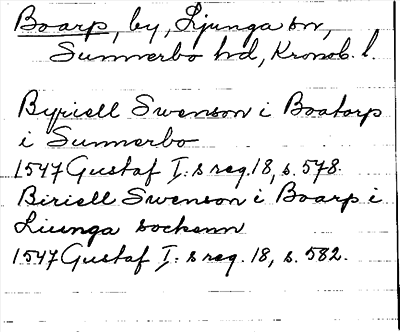 Boarp, by, Ljunga sn,
Sunnerbo hd, Kronob. l.
Byriell Swenson i Boatorp
i Sunnerbo
1547 Gustaf I:s reg. 18, s. 578.
Biriell Swenson i Boarp i
Liunga sockenn
1547 Gustaf I:s reg. 18, s. 582.